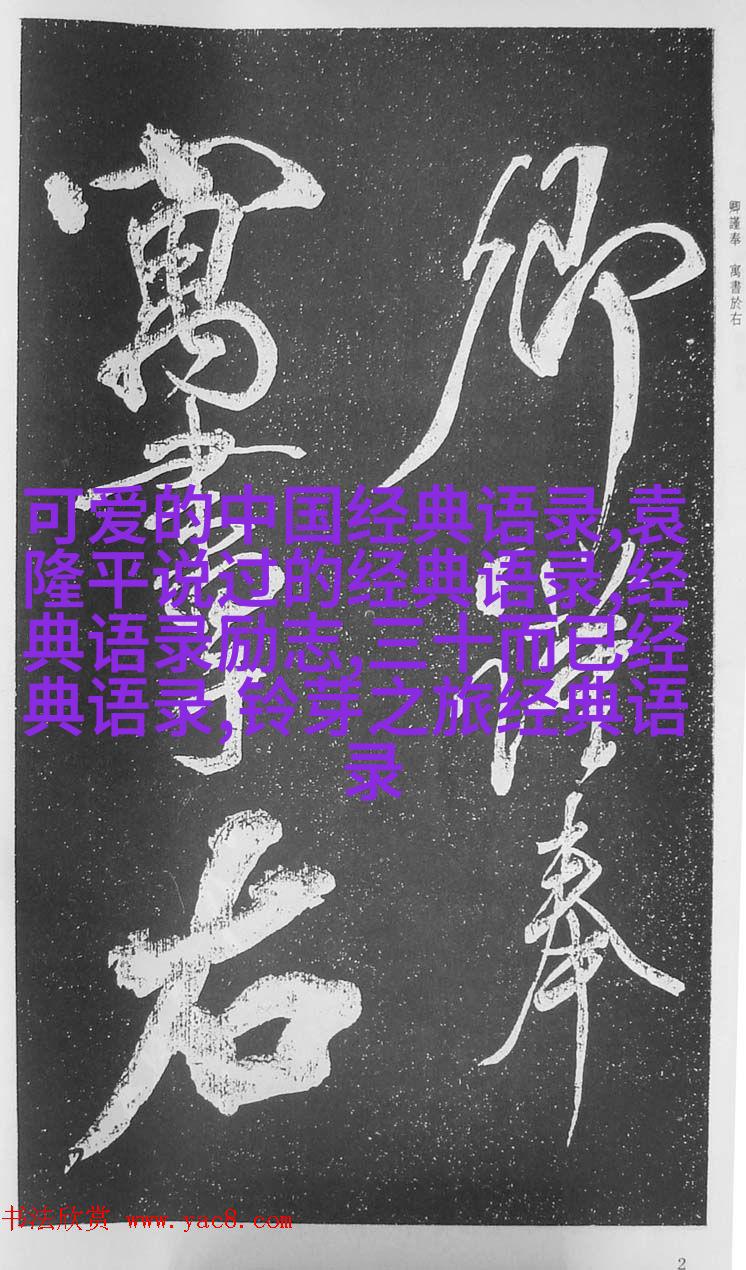 卿謹奉
寓書於右
卿謹奉 寓書於右
可爱的中国经典语录,袁
隆平说过的经典语录,经
典语录励志,三十而已经
典语录,铃芽之旅经典语
录
书法欣赏 www.yac8.com
2